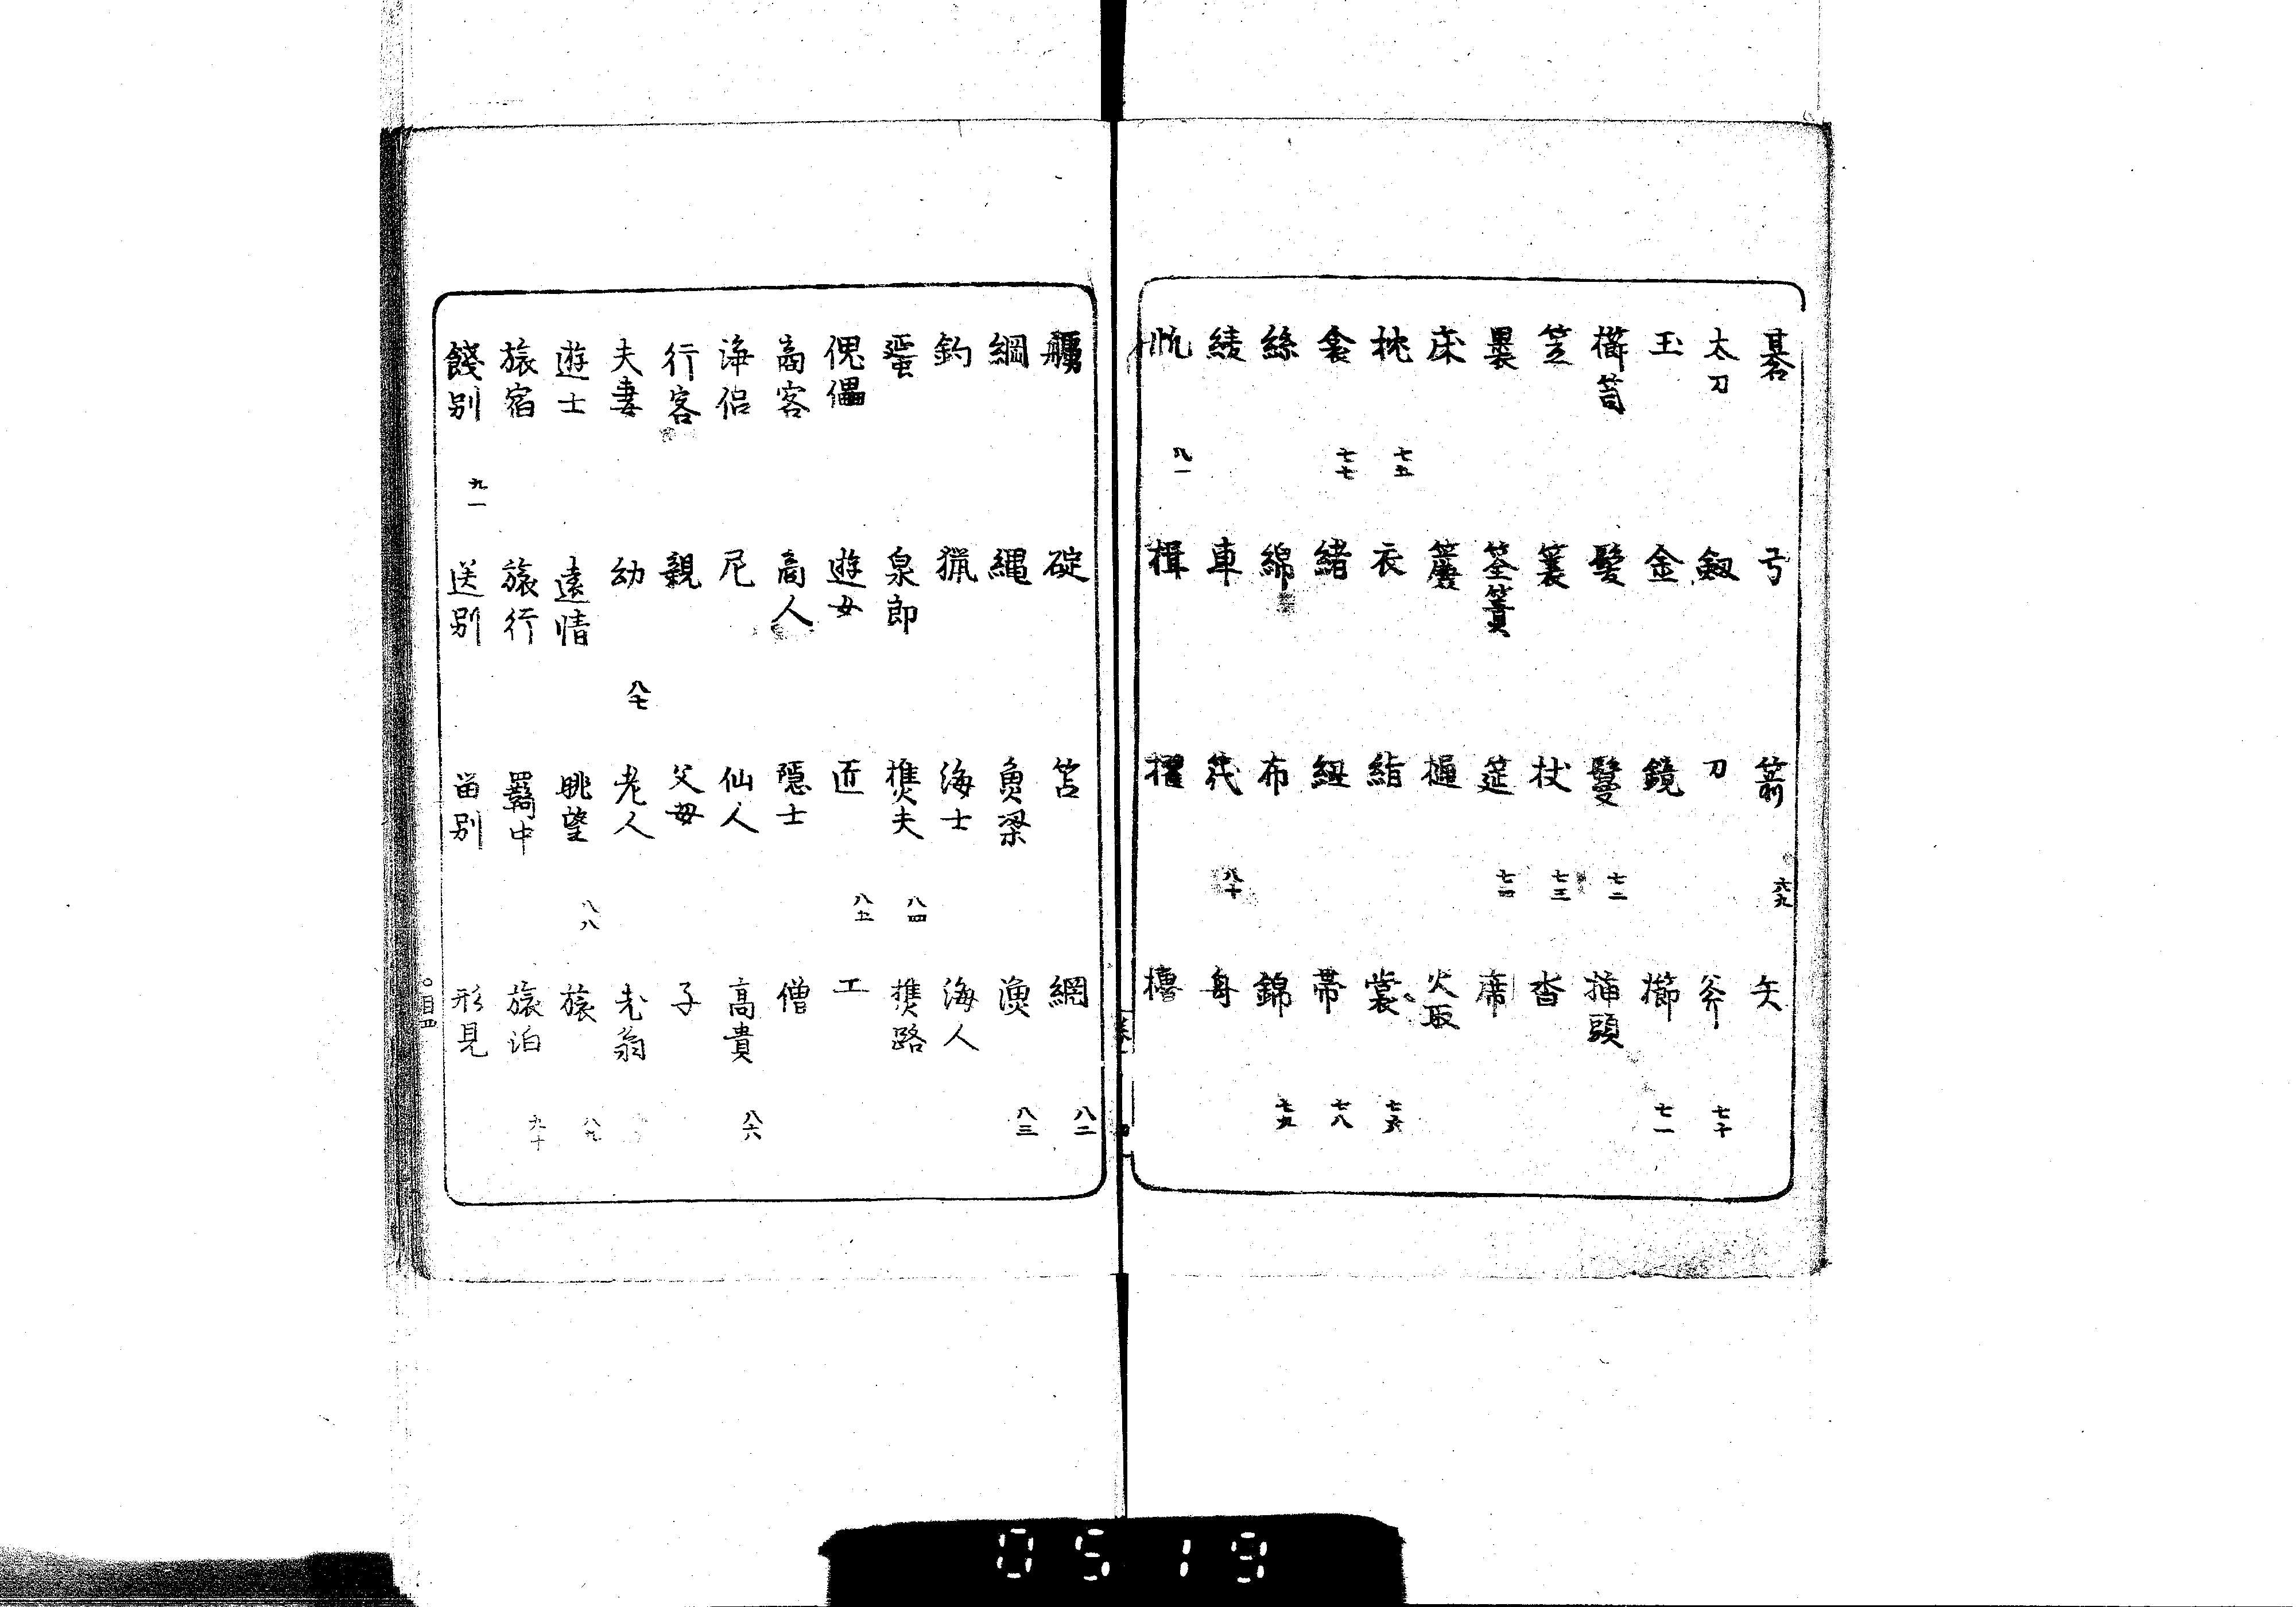 碁 弓 箭 六九 矢
太刀 釼 刀 斧 七十
玉 金 鏡 櫛 七一
櫛笥 髪 鬘 七二 插頭
笠 簑 杖 七三 沓
墨 筌簀 筵 七四 席
床 樋 火取
枕 七五 衣 結 裳 七六
衾 七七 緒 紐 帯 七八
絲 綿 布 錦 七九
綾 車 筏 八十 舟
帆 八一 楫 櫂 櫓
碇 笘 網 八二
綱 縄 魚梁 漁 八三
釣 猟 海士 海人
蜑 泉郎 樵夫 八四 樵路
傀儡 遊女 匠 八五 工
商客 商人 隠士 僧
海侶 尼 仙人 高貴 八六
行客 親 父母 子
夫妻 幼 八七 老人 老翁
遊士 遠情 眺望 八八 旅 八九
旅宿 旅行 羈中 旅泊 九十
餞別 九一 送別 留別 形見
目四
0519